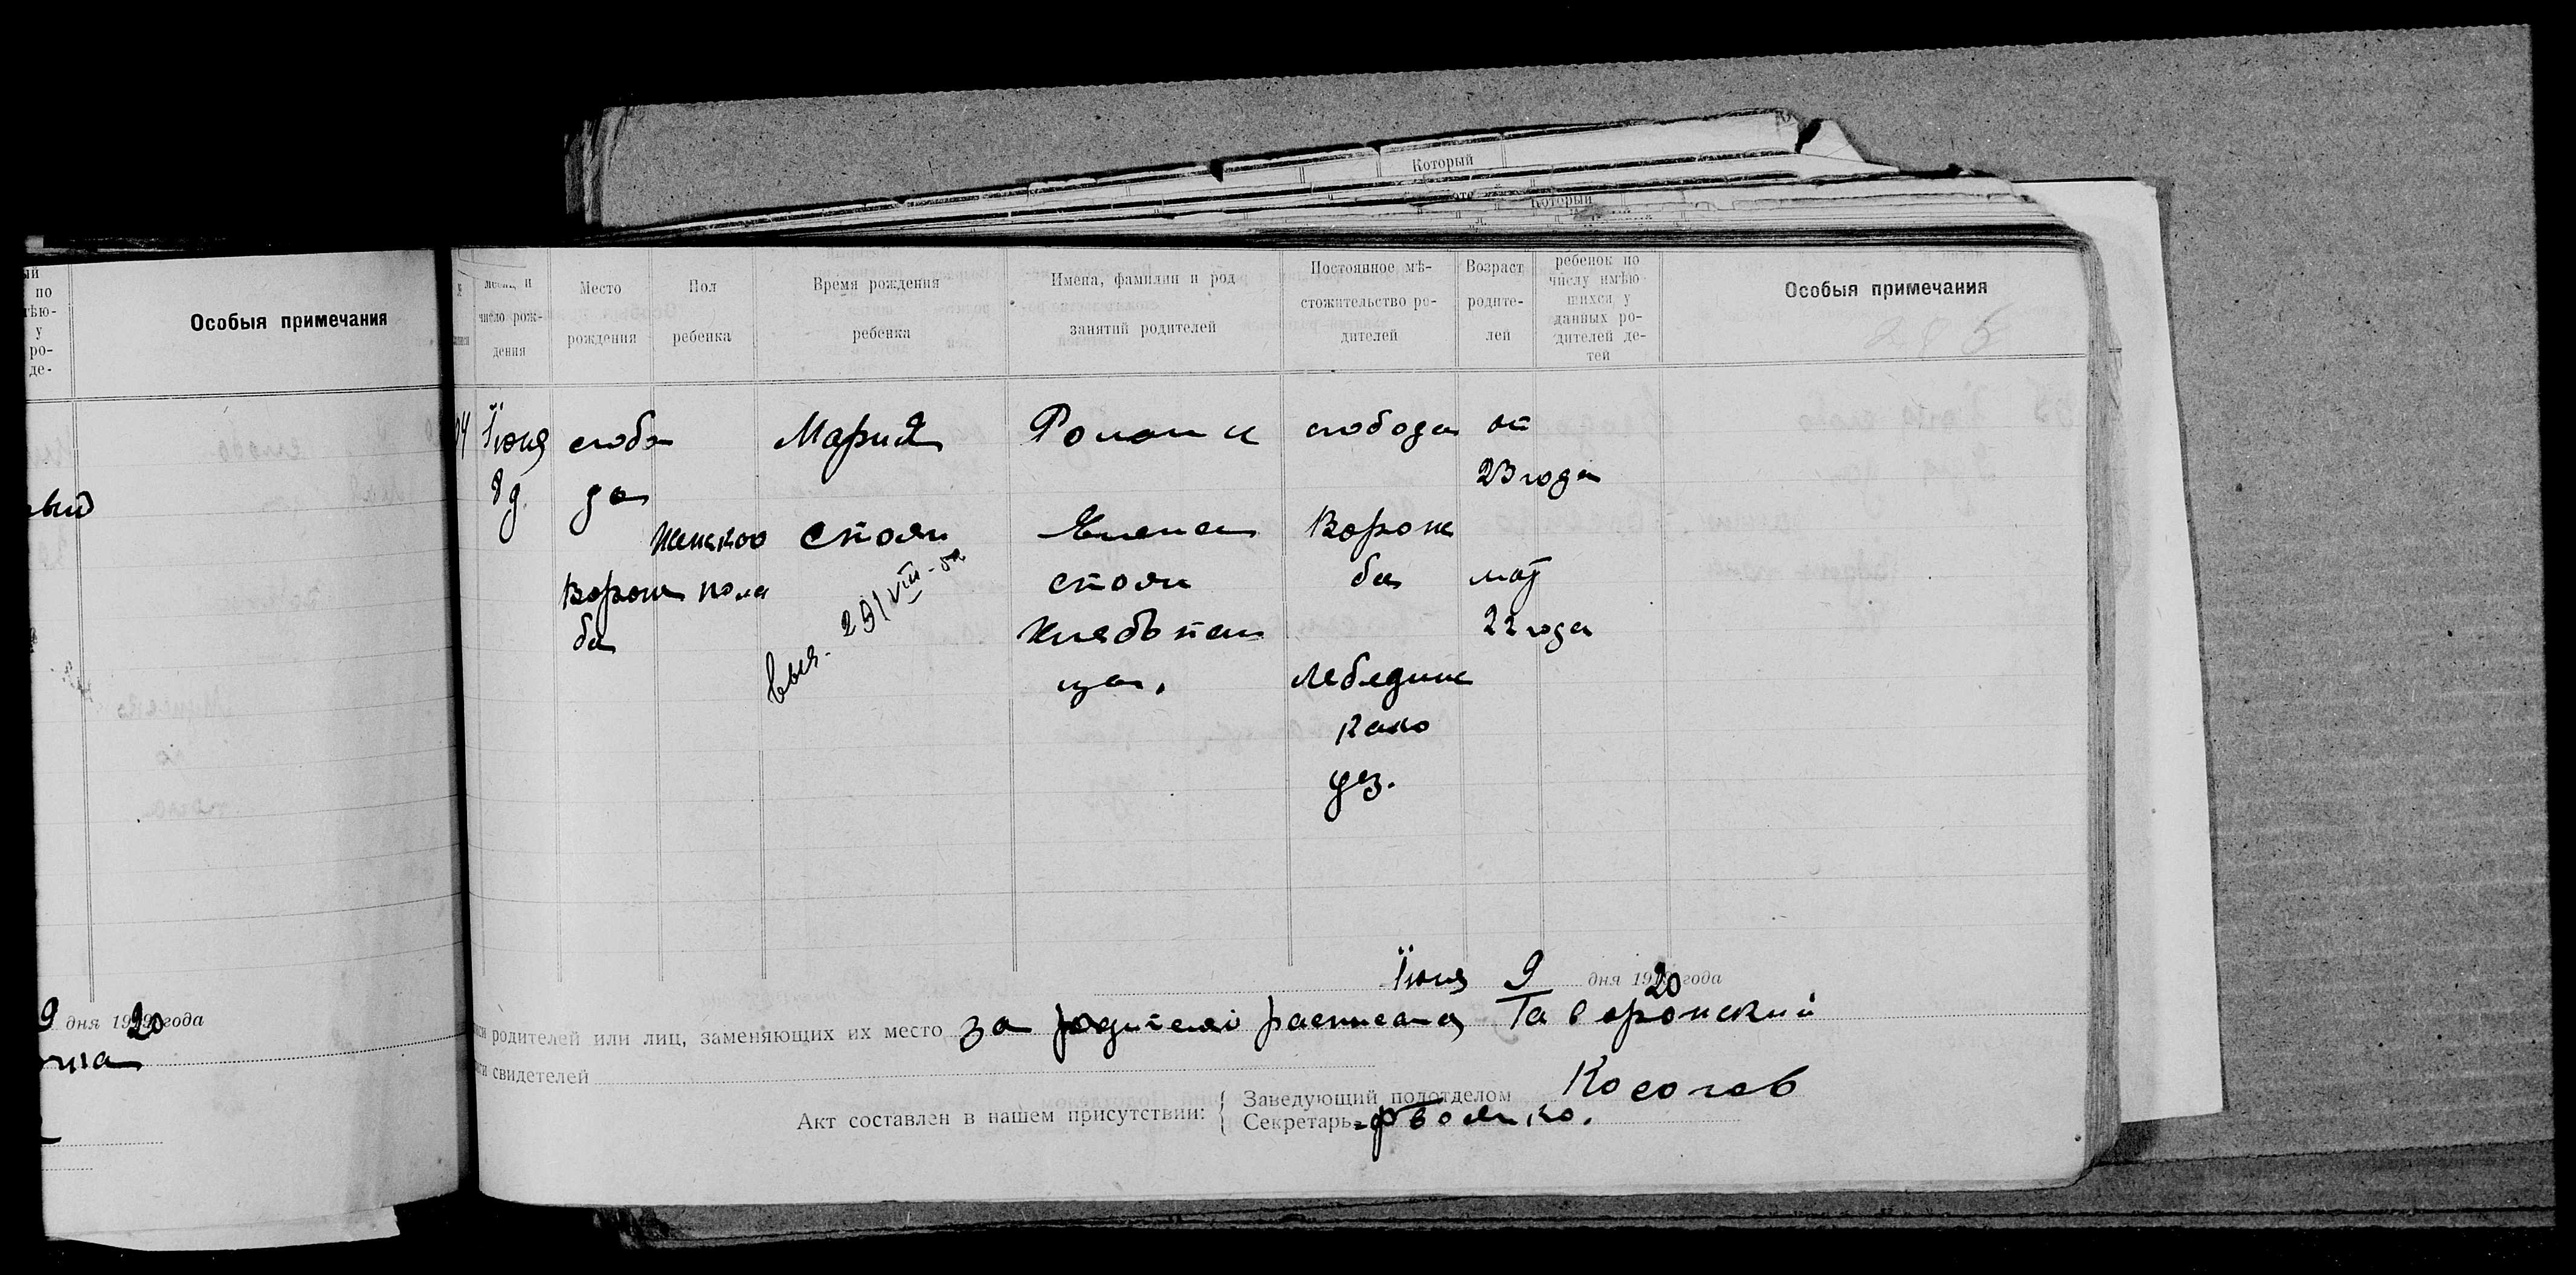 Который
Который
ый
по
ѣю-
у
ро-
де-
Особыя примечания
ый
9 дня 1920 года
месяц и число рож-дения
Место рождения
Пол ребенка
Время рождения ребенка
Имена, фамилии и род занятий родителей
Постоянное мѣ-стожительство ро-дителей
Возраст родите-лей
ребенок по числу имѣю-щихся у данных ро-дителей де-тей
Особыя примечания
Іюня
8 д.
слобо
да
Ворож
ба
Женского
пола
Мария
Стоян
выд. 29/VIII-52
Роман и
Елена
Стоян
Хлебопаш
ца.
слобода
Ворож
ба
Лебедин
каго
уез.
от
23 года
мат
22 года
Іюня 9 дня 1920 года
родителей или лиц, заменяющих их место за родителей расписался Таворонский
свидетелей
Акт составлен в нашем присутствии:
Заведующий подотделом Косогов
Секретарь